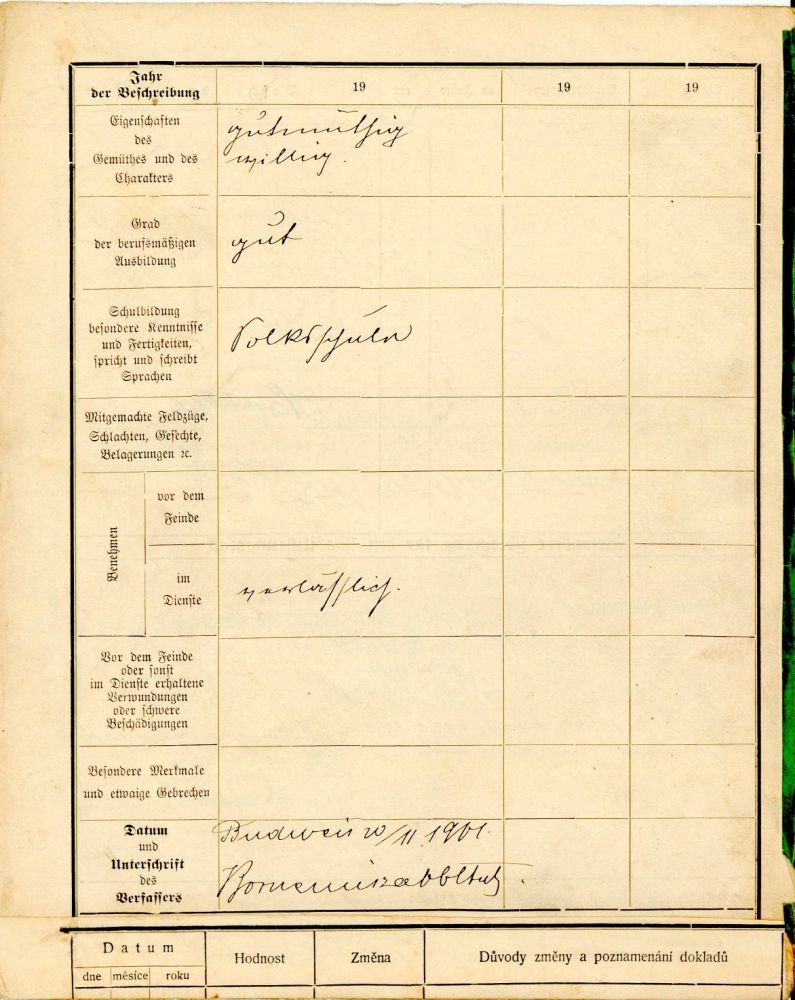 Jahr
der Beschreibung
19
19
19
Eigenschaften
des
Gemüthes und des
Charakters
gutmüthig
willig.
Grad
der berufsmäßigen
Ausbildung
gut
Schulbildung
besondere Kenntnisse
und Fertigkeiten,
spricht und schreibt
Sprachen
Volksschule
Mitgemachte Feldzüge,
Schlachten, Gefechte,
Belagerungen ꝛc.
Benehmen
vor dem
Feinde
im
Dienste
verläßlich.
Vor dem Feinde
oder sonst
im Dienste erhaltene
Verwundungen
oder schwere
Beschädigungen
Besondere Merkmale
und etwaige Gebrechen
Datum
und
Unterschrift
des
Verfassers
Budweis 20/11 1901.
Datum
dne měsíce roku
Hodnost
Změna
Důvody změny a poznamenání dokladů